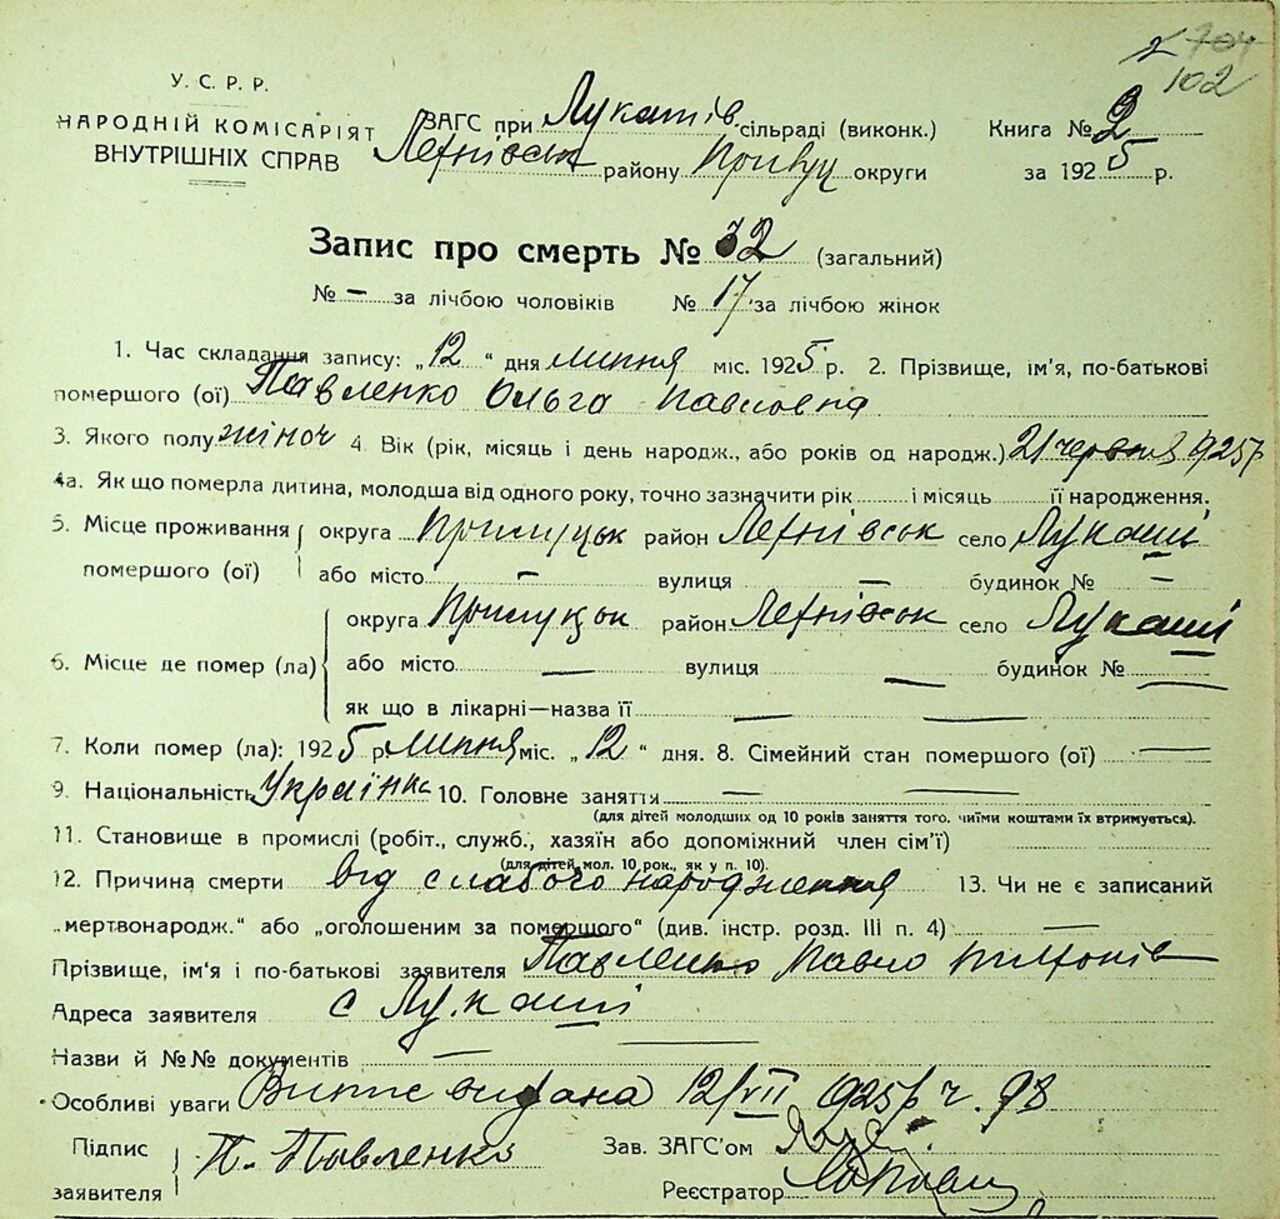 102
У. С. Р. Р.
НАРОДНІЙ КОМІСАРІЯТ
ВНУТРІШНІХ СПРАВ
ЗАГС при Лукашів. сільраді (виконк.)
району округи
Книга № 2
за 1925 р.
Запис про смерть № 32 (загальний)
№ — за лічбою чоловіків № 17 за лічбою жінок
1. Час складання запису: „12“ дня липня міс. 1925 р. 2. Прізвище, ім'я, по-батькові
помершого (ої) Павленко Ольга Павловна
3. Якого полу жіноч 4. Вік (рік, місяць і день народж., або років од народж.) 21 червня 1925 р
4а. Як що померла дитина, молодша від одного року, точно зазначити рік і місяць її народження.
5. Місце проживання помершого (ої) округа Прилуцьк район село Лукаші
або місто — вулиця — будинок № —
6. Місце де помер (ла) округа Прилуцьк район село Лукаші
або місто — вулиця — будинок № —
як що в лікарні—назва її — —
7. Коли помер (ла): 1925 р. липня міс. „12“ дня. 8. Сімейний стан помершого (ої) —
9. Національність Українка 10. Головне заняття — —
(для дітей молодших од 10 років заняття того. чиїми коштами їх втримується).
11. Становище в промислі (робіт., служб., хазяїн або допоміжний член сім'ї)
(для дітей мол. 10 рок., як у п. 10).
12. Причина смерти від слабого народження 13. Чи не є записаний
„мертвонародж.“ або „оголошеним за помершого“ (див. інстр. розд. III п. 4) —
Прізвище, ім'я і по-батькові заявителя Павленко Павло
Адреса заявителя с Лукаші
Назви й №№ документів — —
Особливі уваги видана 12/VII 1925 р ч. 98
Підпис заявителя П. Павленко
Зав. ЗАГС'ом
Реєстратор